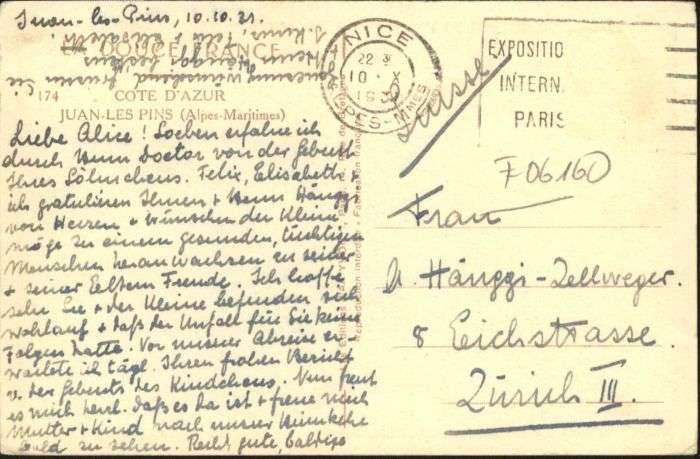 Juan-les-Pins, 10.10.31.
LA DOUCE FRANCE
174 COTE D'AZUR
JUAN-LES PINS (Alpes-Maritimes)
Liebe Alice! Soeben erfahre ich
durch Herrn Doctor von der Geburt
Ihres Söhnchens. Felix, Elisabeth +
ich gratulieren Ihnen + Herrn Hänggi
von Herzen + wünschen der Kleine
möge zu einem gesunden, tüchtigen
Menschen heranwachsen zu seiner
+ seiner Eltern Freude. Ich hoffe
sehr Sie + der Kleine befinden sich
wohlauf + daß der Unfall für Sie keine
Folgen hatte. Vor unserer Abreise er-
wartete ich tägl. Ihren frohen Bericht
v. der Geburt des Kindchens. Nun freut
es mich herzl. daß es da ist + freue mich
Mutter + Kind nach unsrer Heimkehr
bald zu sehen. Recht gute, baldige
Genesung wünschend grüssen Sie
Herrn Hänggi
Felix + Elisabeth.
NICE
22
10 X
ALPES-MMES
EXPOSITIO
INTERN
PARIS
Suisse
F06160
Frau
A. Hänggi-Zellweger.
8 Eichstrasse.
Zürich III.